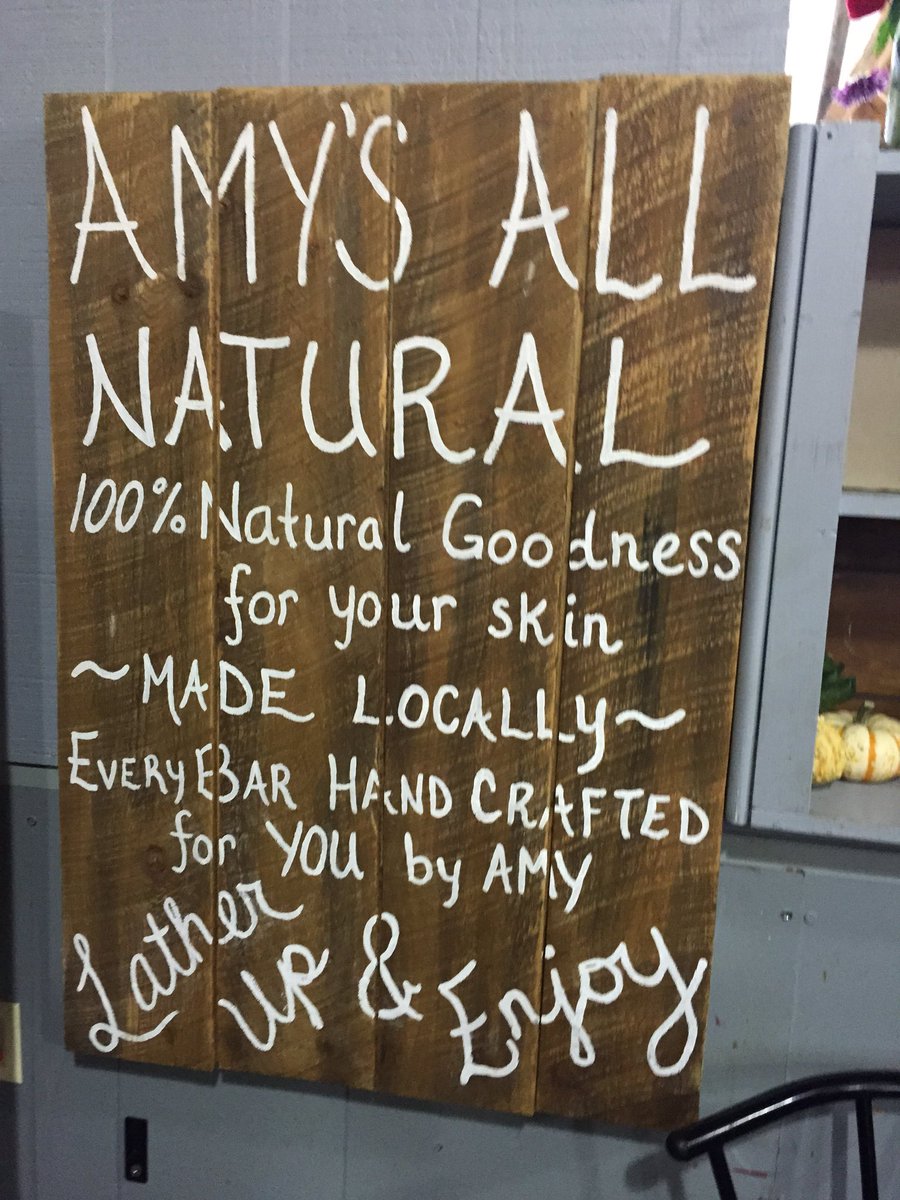 AMY'S ALL
NATURAL
100% Natural Goodness
for your skin
~MADE LOCALLY~
EVERY BAR HAND CRAFTED
for YOU by AMY
Lather UP & Enjoy